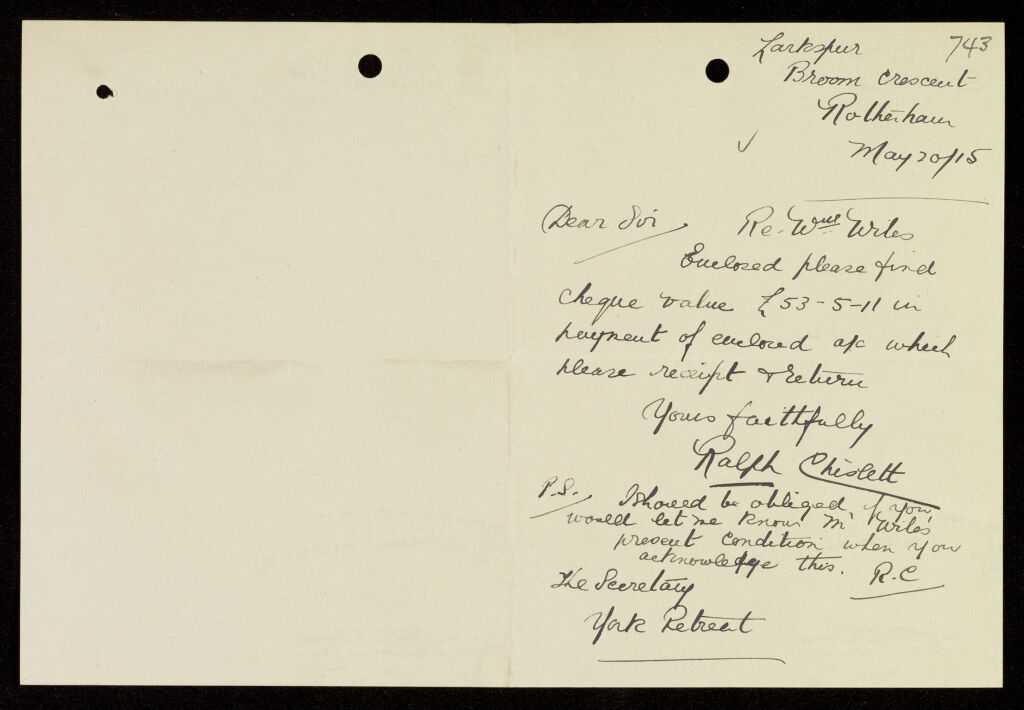 743
Larkspur
Broom Crescent
Rotherham
May 20/15
Dear Sir
Re. Wm Wiles
Enclosed please find
cheque value £53-5-11 in
payment of enclosed a/c which
please receipt & return
Yours faithfully
Ralph Chislett
P.S. I should be obliged, if you
would let me know Mr Wiles'
present condition when you
acknowledge this. R.C
The Secretary
York Retreat